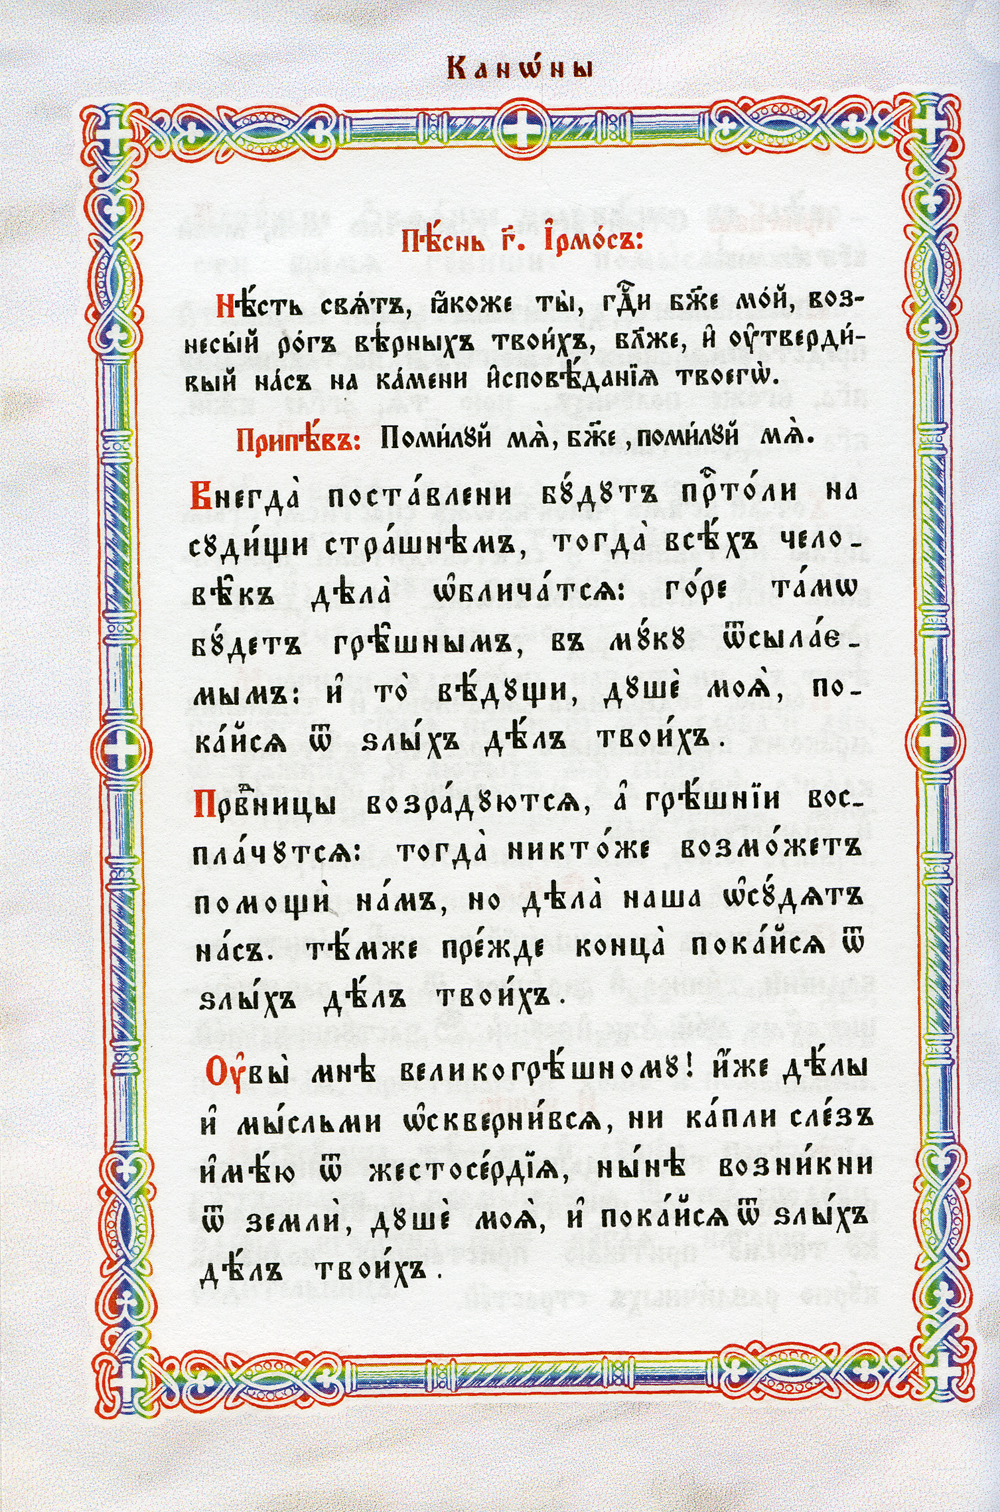 Канѡ́ны
Пѣ́снь г҃. І҆рмо́съ:
Нѣ́сть свѧ́тъ, ꙗ҆́коже ты̀, гдⷭ҇и бж҃е мо́й, воз-
несы́й ро́гъ вѣ́рныхъ твои́хъ, бл҃же, и҆ ᲂу҆твердѝ-
вый на́съ на ка́мени и҆сповѣ́данїѧ твоегѡ̀.
Припѣ́въ: Поми́лꙋй мѧ̀, бж҃е, поми́лꙋй мѧ̀.
Внегда̀ поста́влени бꙋ́дꙋтъ прⷭ҇то́ли на
сꙋди́щи стра́шнѣмъ, тогда̀ всѣ́хъ чело-
вѣ̑къ дѣла̀ ѡ҆блича́тсѧ: го́ре та́мѡ
бꙋ́детъ грѣ̑шнымъ, въ мꙋ́кꙋ ѿсыла́є-
мымъ: и҆ то̀ вѣ́дꙋщи, дꙋшѐ моѧ̀, по-
ка́йсѧ ѿ ѕлы́хъ дѣ́лъ твои́хъ.
Првⷣницы возра́дꙋютсѧ, а҆ грѣ́шнїи вос-
пла́чꙋтсѧ: тогда̀ никто́же возмо́жетъ
помощѝ на́мъ, но дѣла̀ наша ѡ҆сꙋ́дѧтъ
на́съ. тѣ́мже пре́жде конца̀ пока́йсѧ ѿ
ѕлы́хъ дѣ́лъ твои́хъ.
Ѹ҆вы̀ мнѣ̀ великогрѣ́шномꙋ! и҆́же дѣ́лы
и҆ мы́сльми ѡ҆скверни́всѧ, ни ка́пли сле́зъ
и҆мѣ́ю ѿ жестосе́рдїѧ, ны́нѣ возни́кни
ѿ землѝ, дꙋшѐ моѧ̀, и҆ пока́йсѧ ѿ ѕлы́хъ
дѣ́лъ твои́хъ.